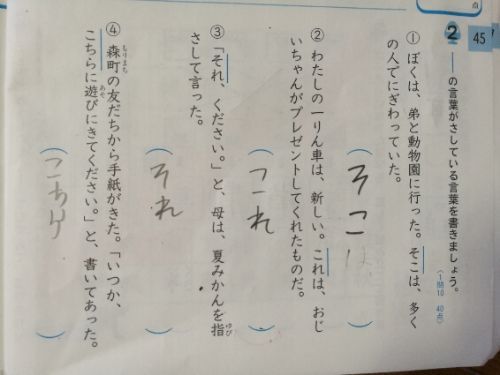 45
点
2 ――の言葉がさしている言葉を書きましょう。
(1問10 40点)
① ぼくは、弟と動物園に行った。そこは、多く
の人でにぎわっていた。
(そこは)
② わたしの一りん車は、新しい。これは、おじ
いちゃんがプレゼントしてくれたものだ。
(これ)
③ 「それ、ください。」と、母は、夏みかんを指
ゆび
さして言った。
(それ)
④ 森町の友だちから手紙がきた。「いつか、
もりまち
こちらに遊びにきてください。」と、書いてあった。
あそ
(こちら)